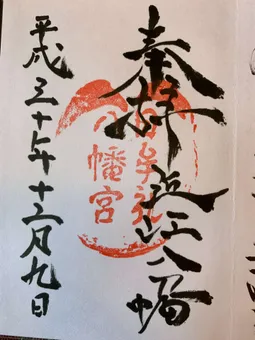 奉拝 近江八幡
日牟礼
八幡宮
平成三十年十二月九日